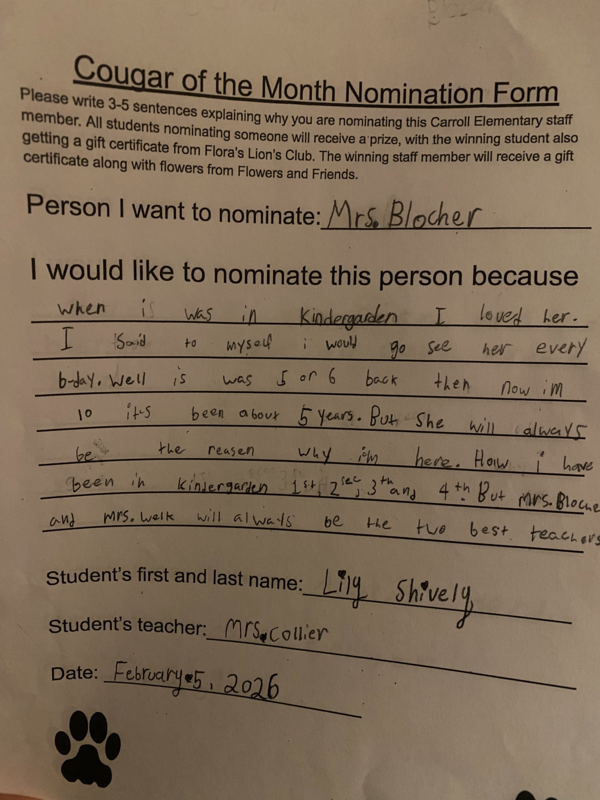 Cougar of the Month Nomination Form
Please write 3-5 sentences explaining why you are nominating this Carroll Elementary staff
member. All students nominating someone will receive a prize, with the winning student also
getting a gift certificate from Flora's Lion's Club. The winning staff member will receive a gift
certificate along with flowers from Flowers and Friends.
Person I want to nominate: Mrs. Blocher
I would like to nominate this person because
when is was in Kindergarden I loved her.
I Said to myself i would go see her every
b-day. Well is was 5 or 6 back then now im
10 it-s been about 5 years. But She will always
be the reasen why i'm here. How i have
been in kindergarden 1st, 2sec, 3th and 4th But Mrs. Bloche
and Mrs. Welk will always be the two best teachers
Student's first and last name: Lily Shively
Student's teacher: Mrs. Collier
Date: February 5, 2026